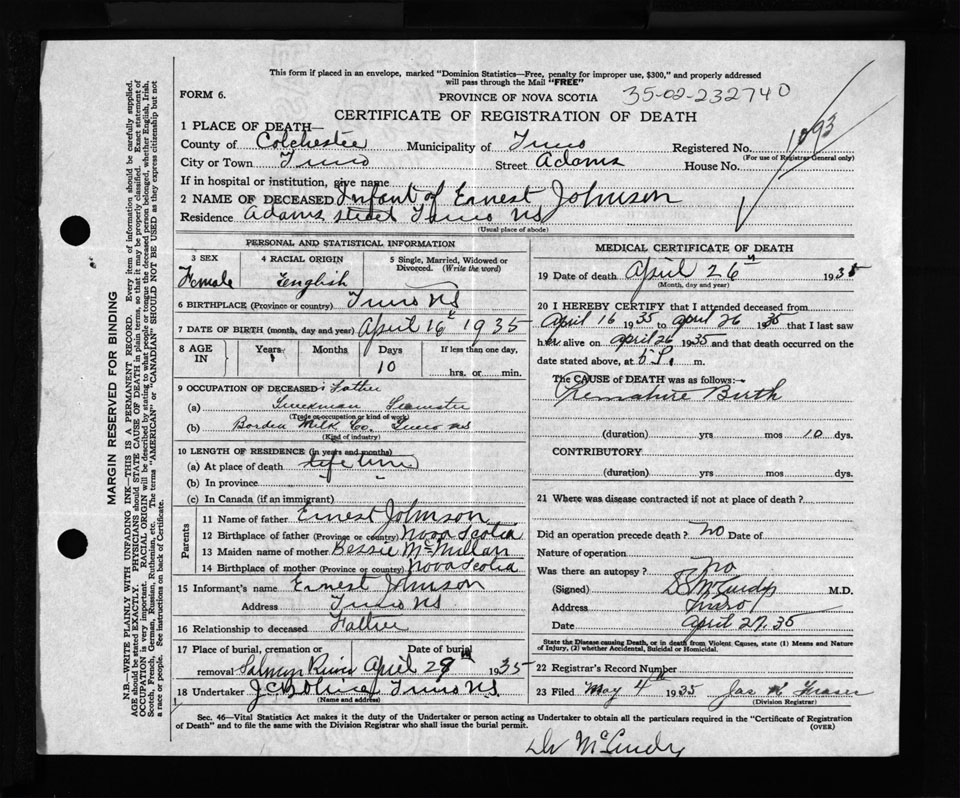 This form if placed in an envelope, marked "Dominion Statistics—Free, penalty for improper use, $300," and properly addressed
will pass through the Mail "FREE"
FORM 6.
PROVINCE OF NOVA SCOTIA 35-02-232740
CERTIFICATE OF REGISTRATION OF DEATH
1 PLACE OF DEATH—
County of Colchester Municipality of Truro Registered No. 1093
(For use of Registrar General only)
City or Town Truro Street Adams House No.
If in hospital or institution, give name
2 NAME OF DECEASED Infant of Ernest Johnson
Residence Adams street Truro NS
(Usual place of abode)
PERSONAL AND STATISTICAL INFORMATION
3 SEX 4 RACIAL ORIGIN 5 Single, Married, Widowed or
Divorced. (Write the word)
Female English
6 BIRTHPLACE (Province or country) Truro NS
7 DATE OF BIRTH (month, day and year) April 16th 1935
8 AGE IN Years Months Days If less than one day,
10 hrs. or min.
9 OCCUPATION OF DECEASED: Father
(a) Truckman Teamster
(Trade or occupation or kind of work)
(b) Borden Milk Co. Truro NS
(Kind of industry)
10 LENGTH OF RESIDENCE (in years and months)
(a) At place of death life time
(b) In province " "
(c) In Canada (if an immigrant)
Parents
11 Name of father Ernest Johnson
12 Birthplace of father (Province or country) Nova Scotia
13 Maiden name of mother Bessie McMillan
14 Birthplace of mother (Province or country) Nova Scotia
15 Informant's name Ernest Johnson
Address Truro NS
16 Relationship to deceased Father
17 Place of burial, cremation or Date of burial
removal Salmon River April 28 1935
18 Undertaker Truro NS
(Name and address)
MEDICAL CERTIFICATE OF DEATH
19 Date of death April 26th 1935
(Month, day and year)
20 I HEREBY CERTIFY that I attended deceased from
April 16 1935 to April 26 1935 that I last saw
her alive on April 26 1935 and that death occurred on the
date stated above, at 5 P. m.
The CAUSE OF DEATH was as follows:—
Premature Birth
(duration) yrs mos 10 dys.
CONTRIBUTORY
(duration) yrs mos dys.
21 Where was disease contracted if not at place of death?
Did an operation precede death? No Date of
Nature of operation
Was there an autopsy? No
(Signed) McCurdy M.D.
Address Truro
Date April 27. 35
State the Disease causing Death, or in death from Violent Causes, state (1) Means and Nature
of Injury, (2) whether Accidental, Suicidal or Homicidal.
22 Registrar's Record Number
23 Filed May 4 1935 Jas W Fraser
(Division Registrar)
Sec. 46—Vital Statistics Act makes it the duty of the Undertaker or person acting as Undertaker to obtain all the particulars required in the "Certificate of Registration
of Death" and to file the same with the Division Registrar who shall issue the burial permit. (OVER)
Dr McCurdy
MARGIN RESERVED FOR BINDING
N.B.—WRITE PLAINLY WITH UNFADING INK—THIS IS A PERMANENT RECORD. Every item of information should be carefully supplied.
AGE should be stated EXACTLY. PHYSICIANS should STATE CAUSE OF DEATH in plain terms, so that it may be properly classified. Exact statement of
OCCUPATION is very important. RACIAL ORIGIN will be described by stating to what people or tongue the deceased person belonged, whether English, Irish,
Scotch, French, German, Russian, Ruthenian, etc. The terms "AMERICAN" or "CANADIAN" SHOULD NOT BE USED as they express citizenship but not
a race or people. See instructions on back of Certificate.